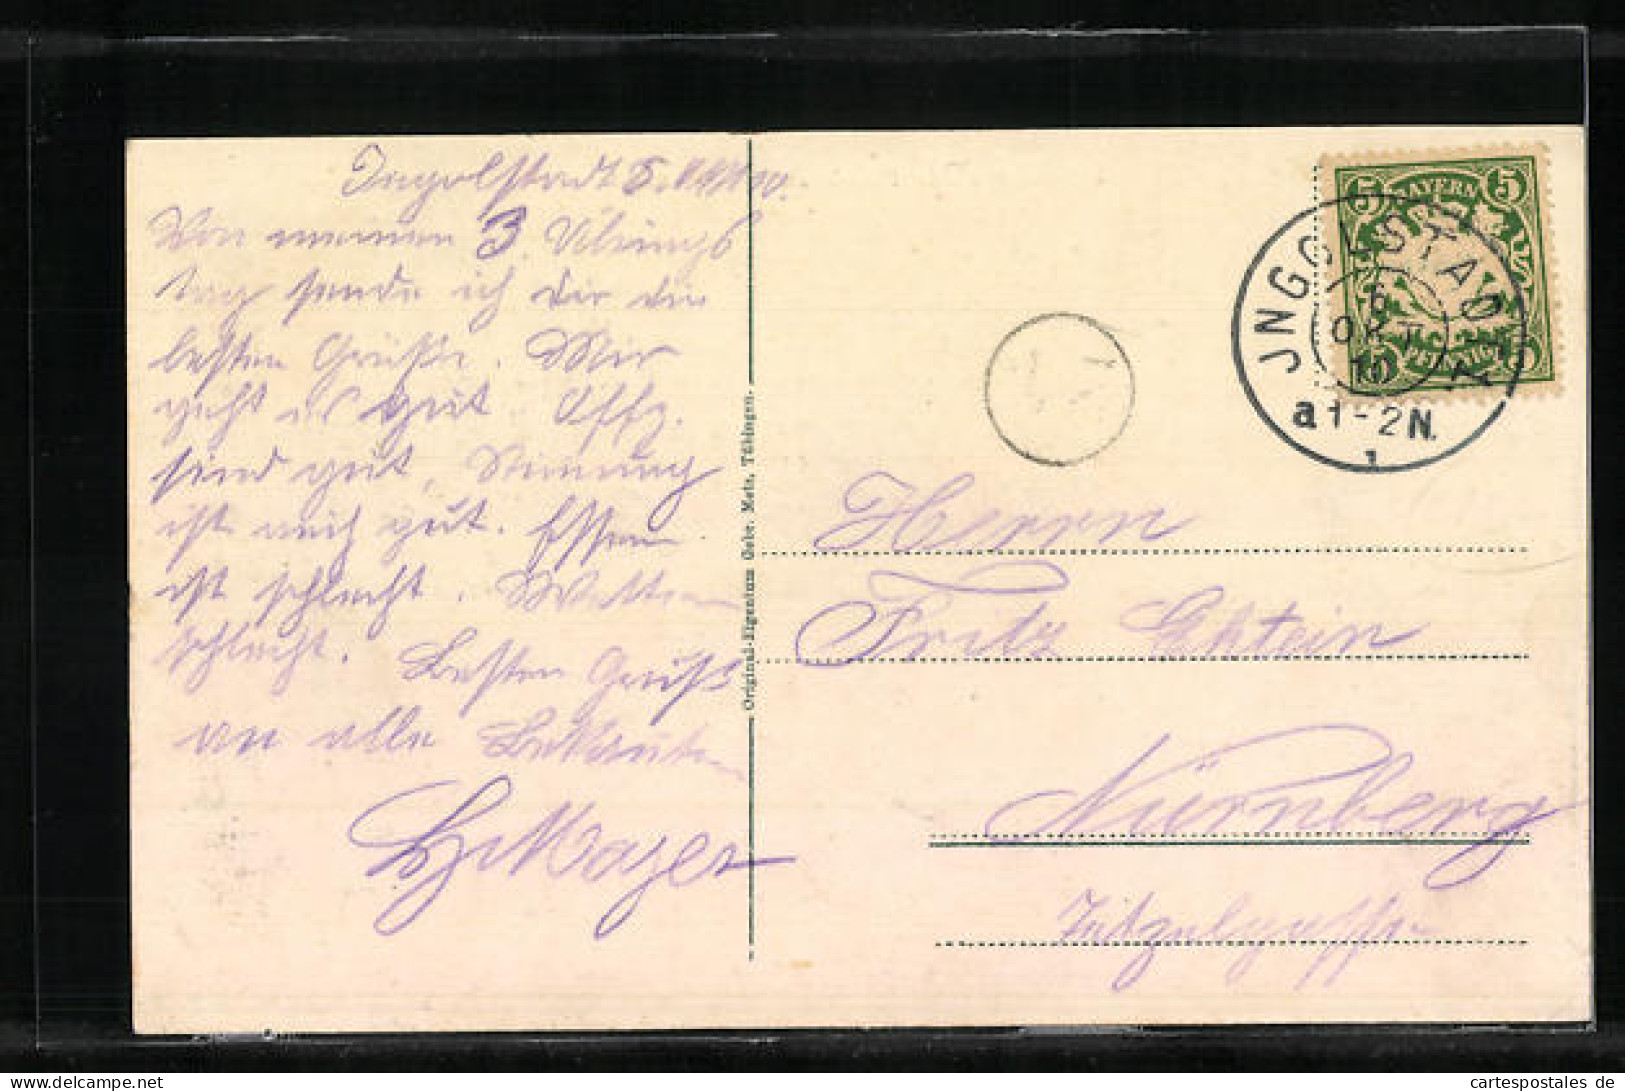 Ingolstadt 5. Okt 10.
Von meinem 3. Übungs
tag sende ich Dir die
besten Grüße. Mir
geht es gut. Offz.
sind gut, Stimmung
ist auch gut. Essen
ist schlecht. Wetter
schlecht. Besten Gruß
an alle Bekannten
Mayer
Original-Eigentum Gebr. Metz, Tübingen.
5 BAYERN 5
5 PFENNIG 5
JNGOLSTADT
6
OKT
10
a 1-2 N.
1
Herrn
Fritz
Nürnberg
cartespostales.de
cartespostales de